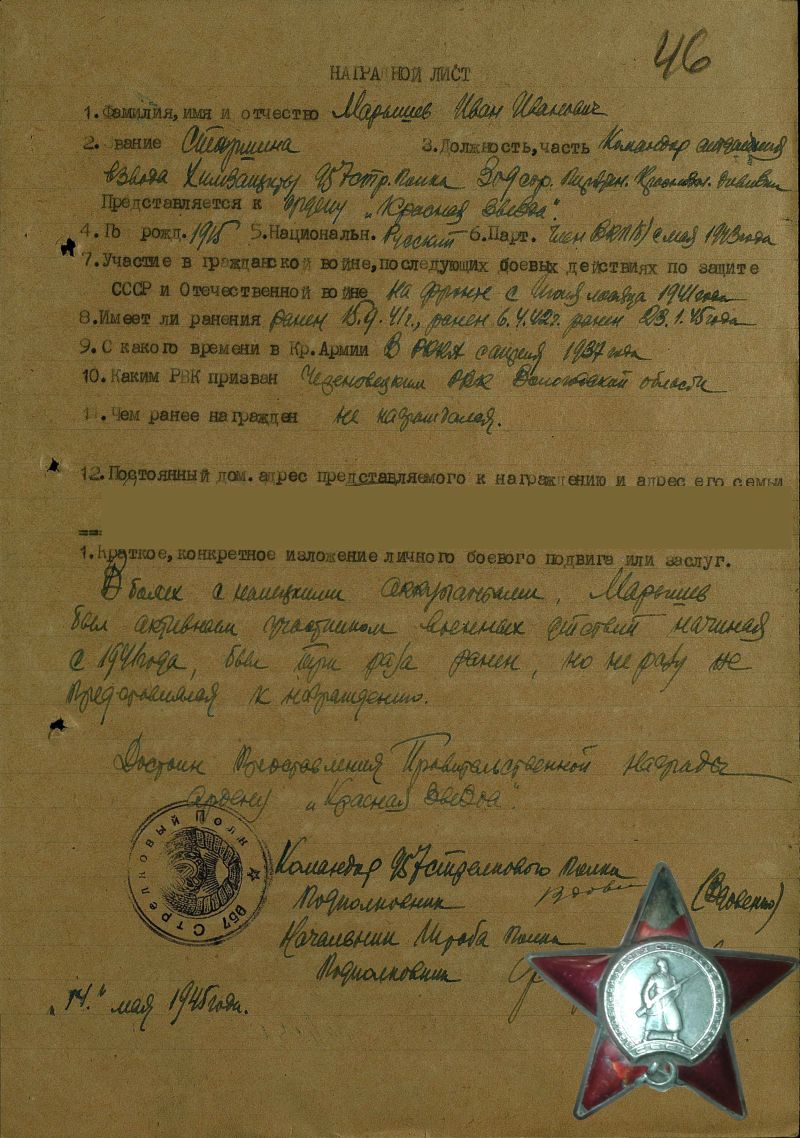 46
НАГРАДНОЙ ЛИСТ
1. Фамилия, имя и отчество Марышев Иван Иванович
2. Звание Старшина 3. Должность, часть Командир отделения
взвода Химзащиты 957 стр. полка 309 стр. Пирятин. Краснозн. дивизии
Представляется к ордену „Красная Звезда".
4. Г. рожд. 1915 5. Национальн. Русский 6. Парт. член ВКП(б) с мая 1943 года
7. Участие в гражданской войне, последующих боевых действиях по защите
СССР и Отечественной войне на фронте с Июня месяца 1941 года
8. Имеет ли ранения ранен 15.9.41 г., ранен 6.4.42 г. ранен 23.1.45 года
9. С какого времени в Кр. Армии в РККА с апреля 1937 года
10. Каким РВК призван РВК Вологодской области
11. Чем ранее награжден не награждался.
12. Постоянный дом. адрес представляемого к награждению и адрес его семьи
1. Краткое, конкретное изложение личного боевого подвига или заслуг.
В боях с немецкими оккупантами, Марышев
был активным участником военных действий начиная
с 1941 года, был три раза ранен, но не разу не
представлялся к награждению.
Достоин представления Правительственной награды
ордену „Красная Звезда".
957 Стрелковый Полк
Командир 957 стрелкового полка
Подполковник (Вдовенко)
Начальник Штаба полка
Подполковник
„14." мая 1945 года.
ПРОЛЕТАРИИ ВСЕХ СТРАН, СОЕДИНЯЙТЕСЬ!
СССР